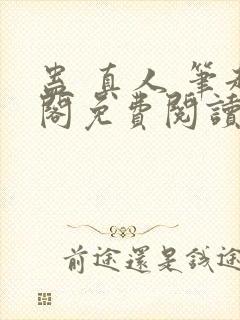 蛊真人 筆趣
閣免費閱讀
前途還是錢途